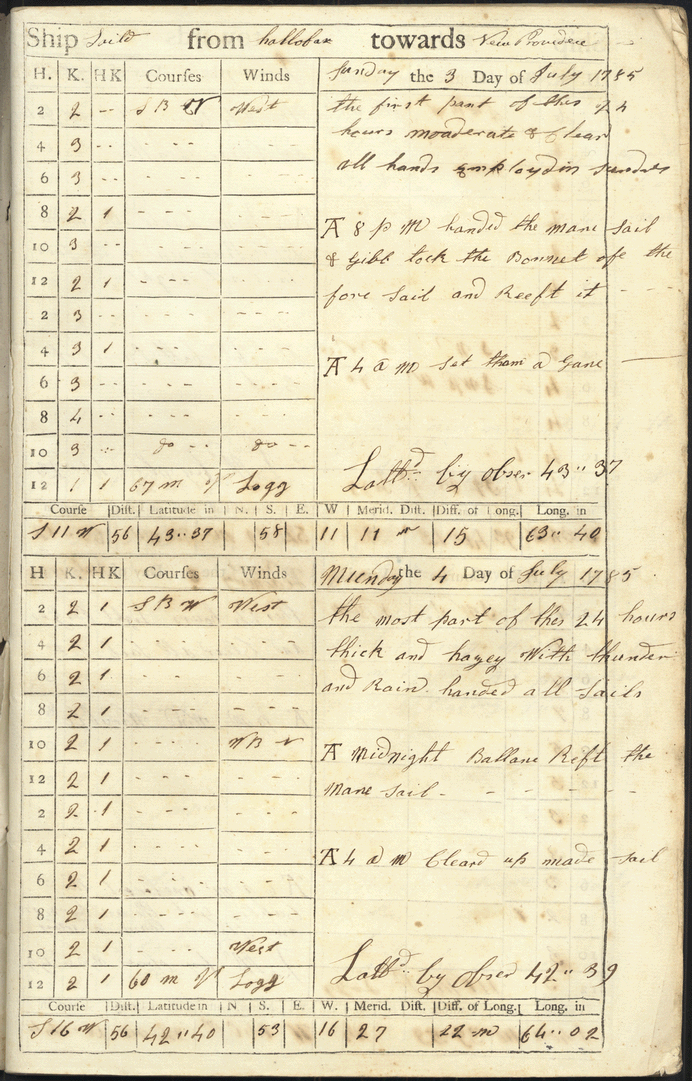 Ship Saild from hallofax towards New Providence
H. K. HK Courses Winds Sunday the 3 Day of July 1785
2 2 -- S B W West the first part of this 24
hours moaderate & Clear
4 3 --
6 3 -- all hands employd in Sundrts
8 2 1 A 8 p m handed the mane Sail
10 3 -- & Gibb tock the Bonnet ofe the
12 2 1 fore Sail and Reeft it
2 3 --
4 3 1 A 4 a m Set tham a Gane
6 3 --
8 4 --
10 3 -- do -- do --
12 1 1 67 m pr Logg Lattd by obser 43" 37
Course Dist. Latitude in N. S. E. W Merid. Dist. Diff. of Long. Long. in
S 11 W 56 43" 37 58 11 11 m 15 63" 40
H K. HK Courses Winds Munday the 4 Day of July 1785
2 2 1 S B W West the most part of thes 24 hours
4 2 1 thick and hazey With thunder
6 2 1 and Rain. handed all Sails
8 2 1
10 2 1 W B A Midnight Ballane Reft the
12 2 1 Mane Sail
2 2 1
4 2 1 A 4 a m Cleard up made Sail
6 2 1
8 2 1
10 2 1 West
12 2 1 60 m pr Logg Lattd by obser 42" 39
Course Dist. Latitude in N S. E. W. Merid. Dist. Diff. of Long. Long. in
S 16 W 56 42" 40 53 16 27 22 m 64" 02